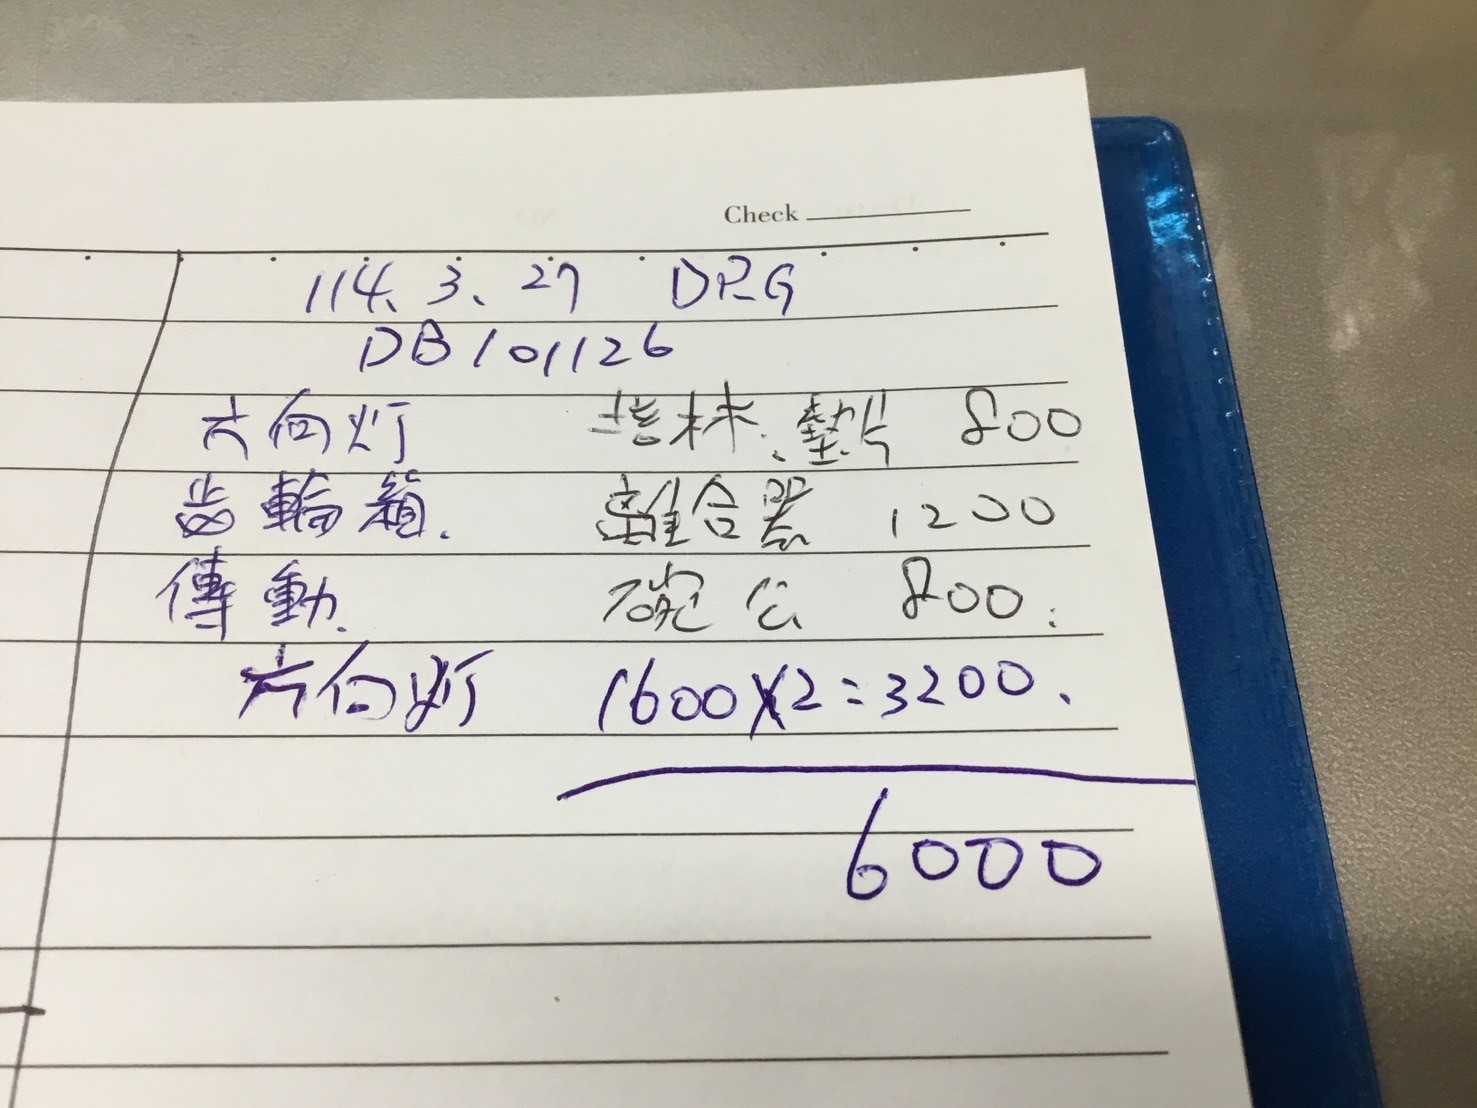 Check
114. 3. 27 DPG
DB101126
方向灯 培林、墊片 800
齒輪箱. 離合器 1200
傳動. 碗公 800.
方向灯 1600X2=3200.
6000